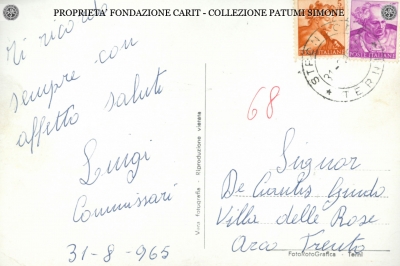 PROPRIETA' FONDAZIONE CARIT - COLLEZIONE PATUMI SIMONE
Ti ricordo
sempre con
affetto saluti
Luigi
Commissari
31-8-965
68
POSTE ITALIANE
TERNI
Vera Fotografia - Riproduzione vietata
Signor
De Cantis Guido
Villa delle Rose
Arco Trento
FotoRotoGrafica - Terni